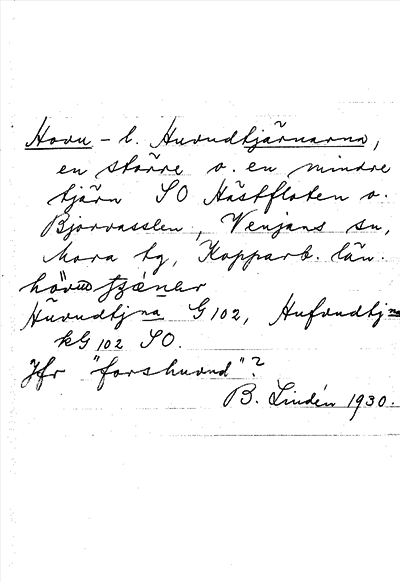 Hovu - l. Huvudtjärnarna,
en större o. en mindre
tjärn SO Hästfloten o.
Björvasslen, Venjans sn,
Mora tg, Kopparb. län.
Huvudtjna G 102, Hufvudtjna
kG 102 SO.
Jfr "forshuvud"?
B. Lindén 1930.